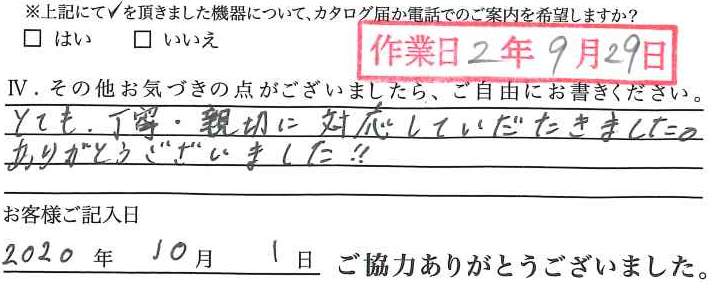 ※上記にて✓を頂きました機器について、カタログ届か電話でのご案内を希望しますか?
□ はい □ いいえ
作業日2年9月29日
Ⅳ．その他お気づきの点がございましたら、ご自由にお書きください。
とても、丁寧・親切に対応していだたきました。
ありがとうございました!!
お客様ご記入日
2020年10月1日 ご協力ありがとうございました。